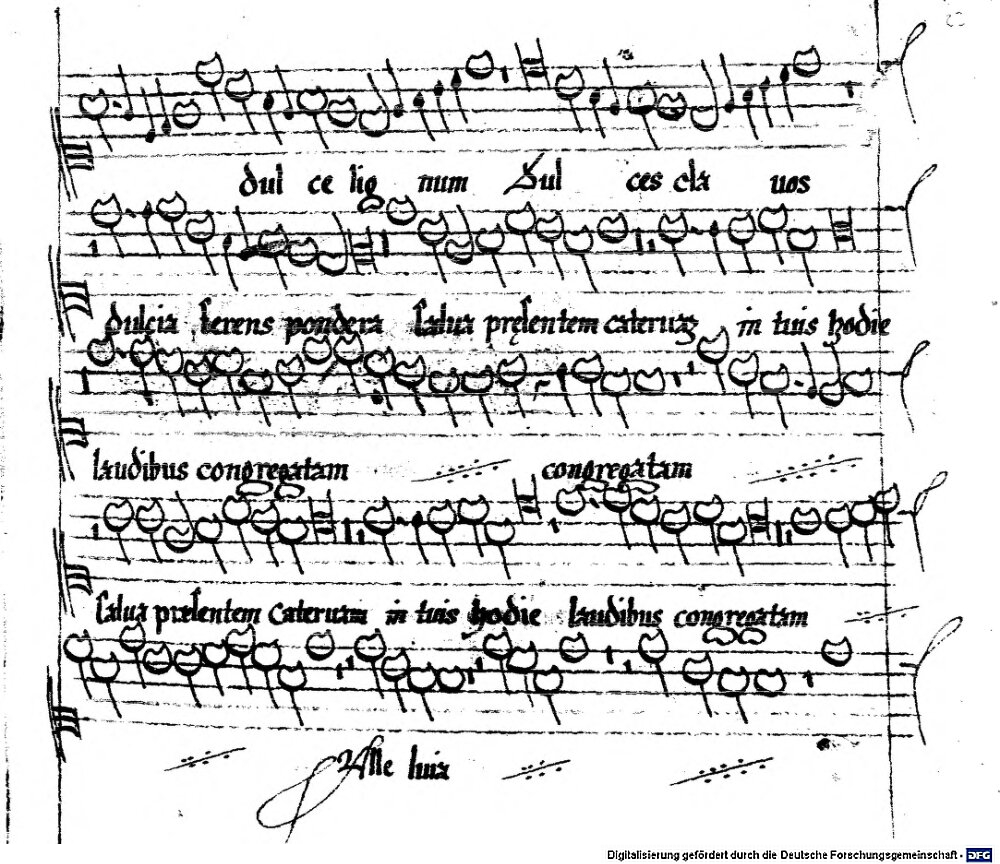 dul ce lig num Dul ces cla uos
dulcia ferens pondera salua pręsentem cateruaz in tuis hodie
laudibus congregatam congregatam
salua pręsentem Cateruam in tuis hodie laudibus congregatam
Alle luia
Digitalisierung gefördert durch die Deutsche Forschungsgemeinschaft - DFG